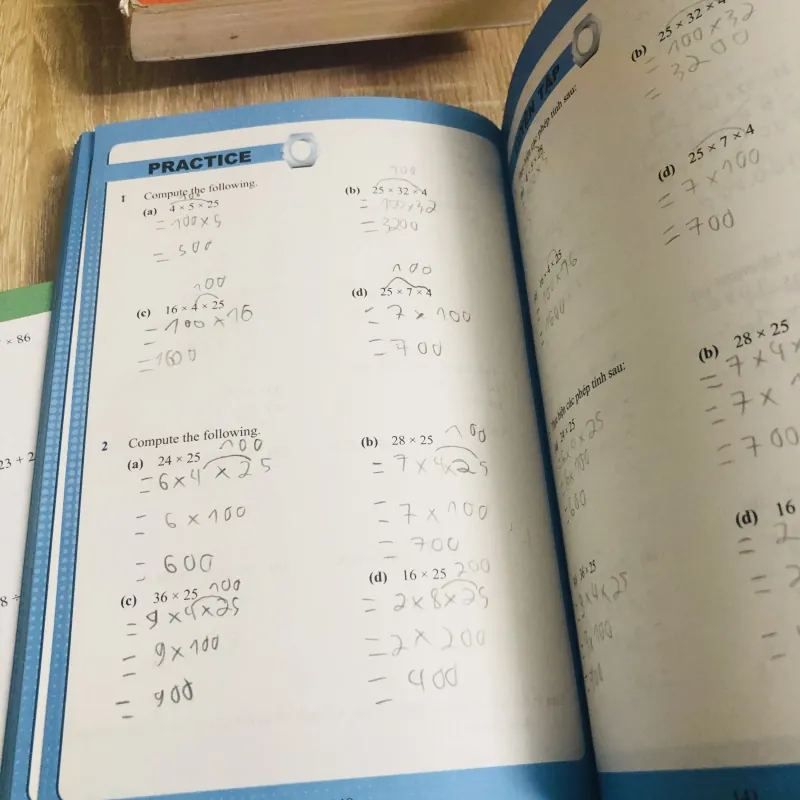 × 86
23 + 2
8 ÷
PRACTICE
1 Compute the following.
(a) 4 × 5 × 25
100
= 100 × 5
= 500
(b) 25 × 32 × 4
100
= 100 × 32
= 3200
(c) 16 × 4 × 25
100
= 100 × 16
= 1600
(d) 25 × 7 × 4
100
= 7 × 100
= 700
2 Compute the following.
(a) 24 × 25
100
= 6 × 4 × 25
= 6 × 100
= 600
(b) 28 × 25
100
= 7 × 4 × 25
= 7 × 100
= 700
(c) 36 × 25
100
= 9 × 4 × 25
= 9 × 100
= 900
(d) 16 × 25
200
= 2 × 8 × 25
= 2 × 200
= 400
TẬP
phép tính sau:
(b) 25 × 32 × 4
= 100 × 32
= 3200
(d) 25 × 7 × 4
= 7 × 100
= 700
16 × 4 × 25
= 100 × 16
= 1600
hiện các phép tính sau:
24 × 25
(b) 28 × 25
= 7 × 4 ×
= 7 ×
= 700
36 × 25
(d) 16
= 2
= 2